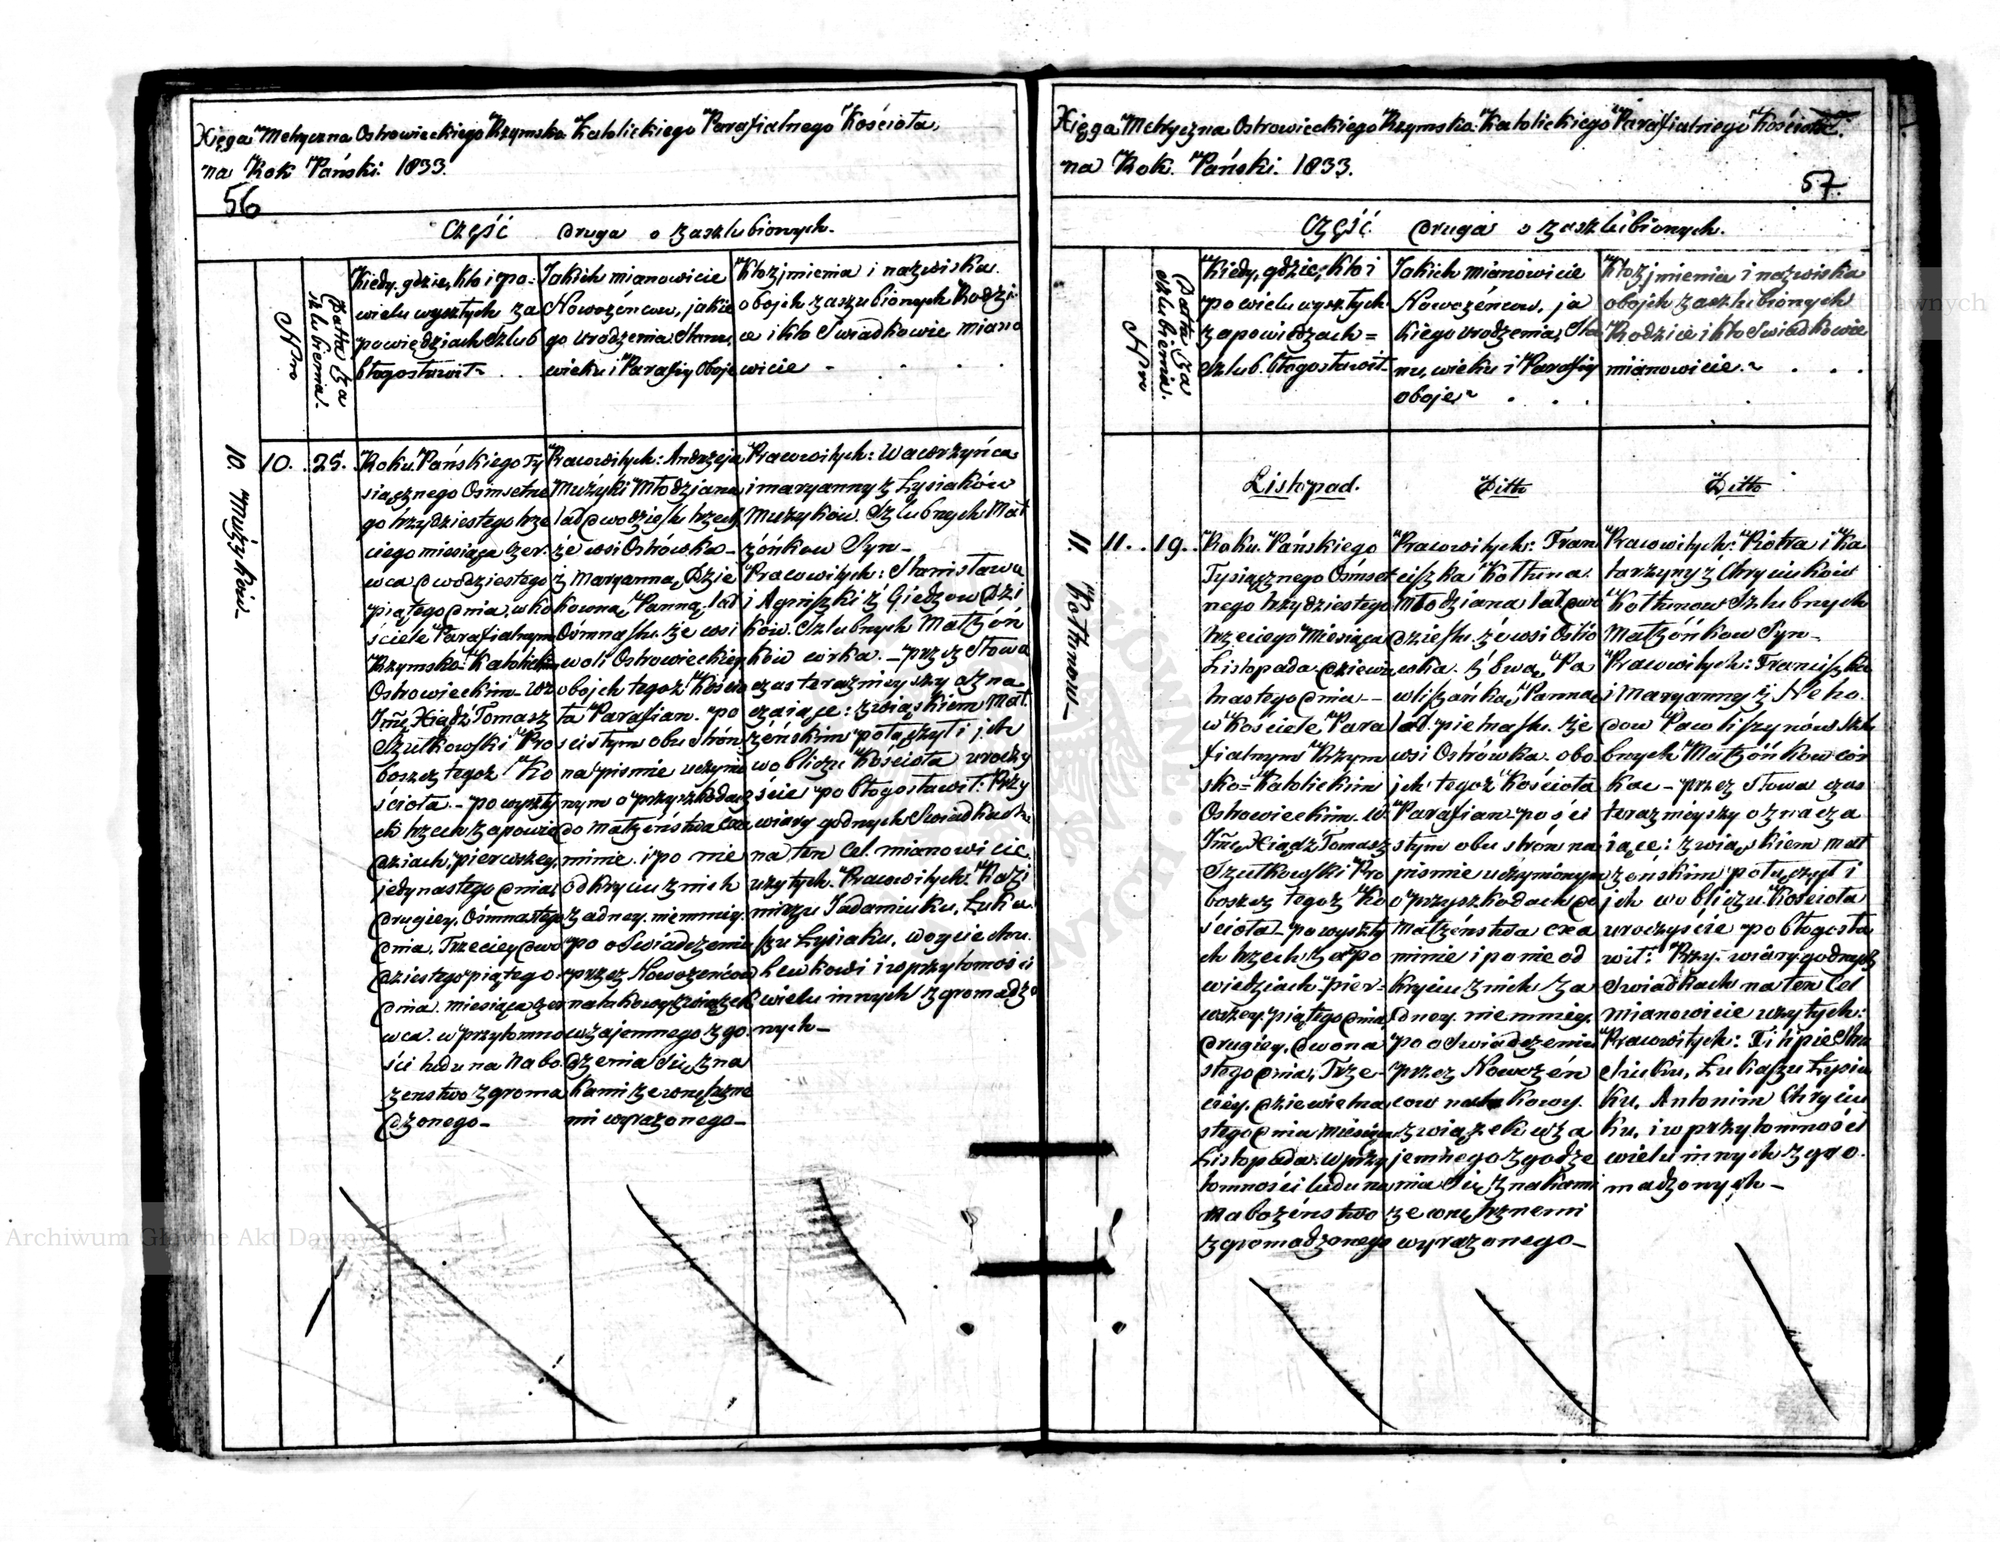 Xięga Metryczna Ostrowieckiego Rzymsko Katolickiego Parafialnego Kościoła,
na Rok Pański: 1833.
56
Część druga o zaszlubionych.
Nro
Datta Za
szlubienia.
Kiedy, gdzie, kto i po
wielu wyszłych za
powiedziach Szlub
błogosławił
Jakich mianowicie
Nowożeńcow, jakie
go Urodzenia, Stanu,
wieku i Parafiy Oboje
Ktoz jmienia i nazwiska
obojch zaszlubionych Rodzi
ce i kto Swiadkowie miano
wicie
10 Mużyków
10.
25.
Roku Pańskiego Ty
siącznego Osmsetne
go trzydziestego trze
ciego miesiąca Czer
wca dwodziestego
piątego dnia, w ko
ściele Parafialnym
Rzymsko Katolickim
Ostrowieckim
Jmć Xiądz Tomasz
Szutkowski Pro
boszcz tegoż Ko
ścioła. - po wyszły
ch trzech zapowie
dziach, pierwszey,
jedynastego dnia,
drugiey, Ośmnastego
dnia, Trzeciey dwo
dziestego piątego
dnia, miesiąca Czer
wca. w przytomno
ści ludu na nabo
żenstwo zgroma
dzonego_
Pracowitych: Andrzeja
Mużyki Młodziana
lat dwodziestu trzech
że wsi Ostrówka_
z Maryanną, Dzie
kowną, Panną, lat
Ośmnastu. że wsi
woli Ostrowieckiey
obojch tegoż Kościo
ła Parafian. po
scisłym obustrón
na pismie uczynio
nym o przyszkodach
do Małżeństwa exa
minie. i po nie
odkryciu z nich
żadney. niemniey,
po oswiadczeniu
przez Nowożeńców
natukowy związek
wzajemnego zgo
dzenia się, zna
kami zewnętrzne
mi wyrażonego_
Pracowitych: Wawrzyńca
i maryanny z Łysiaków
Mużyków. Szlubnych Mał
żónkow Syn_
Pracowitych: Stanisława
i Agnifzki z Giedzow Dzi
ków. Szlubnych Małżón
ków corka. _ przez Słowa
czas teraznieyszy ozna
czające: związkiem Mał
żeńskim połączył i ich
w obliczu Kościoła uroczy
ście pobłogosławił. Przy
wiary godnych Swiadkach
na ten Cel mianowicie
użytych. Pracowitych: Kazi
mirzu Jadamiuku, Łuka
fzu Łysiaku, woyciechu
Lewkowi i w przytomości
wielu innych zgromadzo
nych_
Xięga Metryczna Ostrowieckiego Rzymsko-Katolickiego Parafialnego Kościoła.
na Rok Pański. 1833.
57.
Część druga o zaszlubionych.
Nro
Datta Za
szlubienia.
Kiedy, gdzie, kto i
po wielu wyszłych
zapowiedzach=
Szlub błogosławił
Jakich mianowicie
Nowożeńcow, ja
kiego Urodzenia, Sta
nu, wieku i Parafiy
oboje
Ktoz jmienia i nazwiska
obojch zaszlubionych
Rodzice i kto Swiadkowie
mianowicie.
Listopad.
Ditto
Ditto
11. Kołtunow_
11.
19.
Roku Pańskiego
Tysiącznego Ośmset
nego trzydziestego
trzeciego Miesiąca
Listopada dziewię
tnastego dnia_
w Kościele Para
fialnym Rzym
sko=Katolickim
Ostrowieckim.
Jmć, Xiądz Tomasz
Szutkowski Pro
boszcz tegoż Ko
ścioła_ po wyszły
ch trzech zapo
wiedziach pier=
wszey. piątego dnia
drugiey, dwona
stego dnia, Trze-
ciey, dziewietna
stego dnia Miesiąca
Listopada. w przy
tomności ludu na
Nabożeństwo
zgromadzonego
Pracowitych: Fran
cifzka Kołtuna
Młodziana lat dwo
dziestu. że wsi Ostro
wka. z Ewą, Pa
wlifzańką, Panna
lat pietnastu. że
wsi Ostrówka. obo
jch tegoż Kościoła
Parafian. po ści
słym obu strón na
pismie uczynionym
o przyszkodach do
Małżeństwa exa
minie i po nie od
kryciu z nich ża
dney. niemniey,
po oświadczeniu
przez Nowożeń
cow natukowy.
związek wza
jemnego zgodze
nia się, znakami
zewnętrznemi
wyrażonego_
Pracowitych: Piotra i Ka
tarzyny z Chryciuków
Kołtunow Szlubnych
Małżónkow Syn_
Pracowitych: Francifzka
i Maryanney z
Pawlifzynów Szlu
bnych Małżónkow cór
ka_ przez Słowa czas
teraznieyszy oznacza
iące: związkiem Mał
żeńskim połączył i
jch w obliczu Kościoła
uroczyście pobłogosła
wił: Przy wiary godnych
Swiadkach na ten Cel
mianowicie użytych:
Pracowitych: Filipie
Łukafzu Łysia
ku, Antonim Chryciu
ku, i w przytomności
wielu innych zgro
madzonych_
Archiwum Główne Akt Dawnych